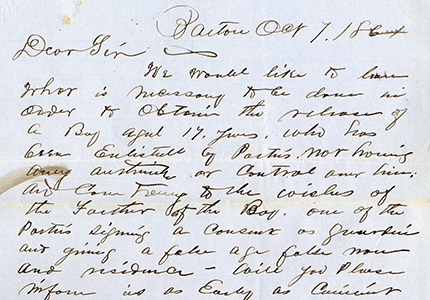 Barton Oct 7. 1864
Dear Sir
We would like to know
what is necessary to be done in
order to Obtain the release of
a Boy aged 17. years. who has
been Enlisted by Parties, not having
any authority or Control over him.
and Contrary to the wishes of
the Farther of the Boy. one of the
Parties signing a consent as guardian
and giving a false age false name
and residence — Will you Please
inform us as Early as